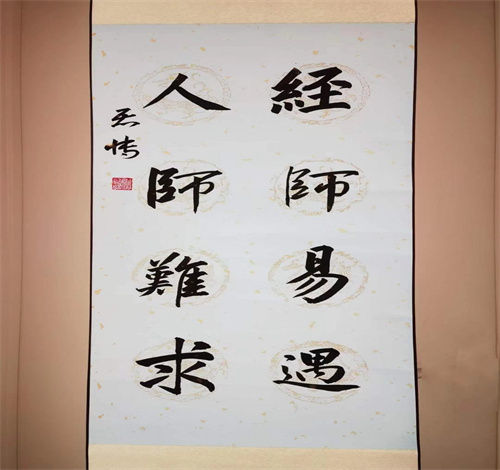 經師易遇
人師難求